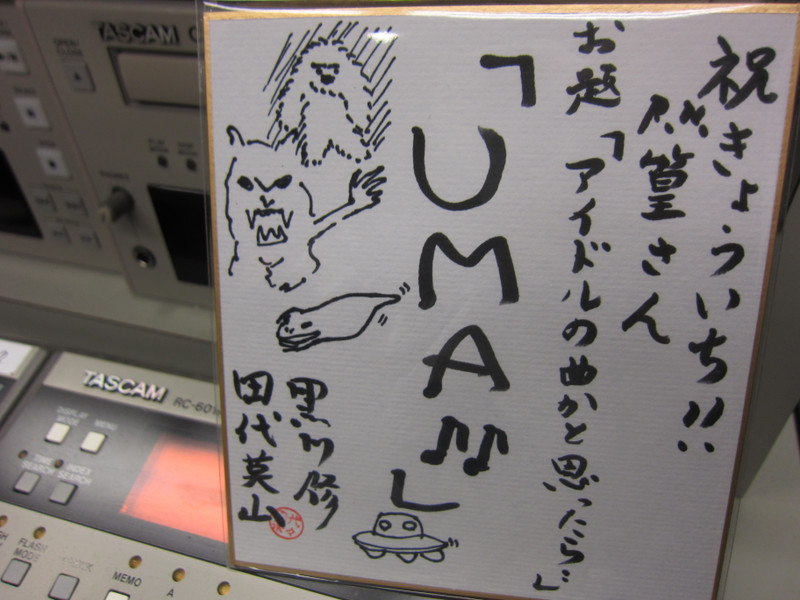 祝きょういち!!
篁さん
お題「アイドルの曲かと思ったら…」
「UMA♫♫」
黒川修
田代英山
TASCAM
TASCAM
RC-601
OPEN/CLEAR
PHONES
DISPLAY MODE
MENU
TIME SEARCH
INDEX SEARCH
FLASH MODE
MEMO
A